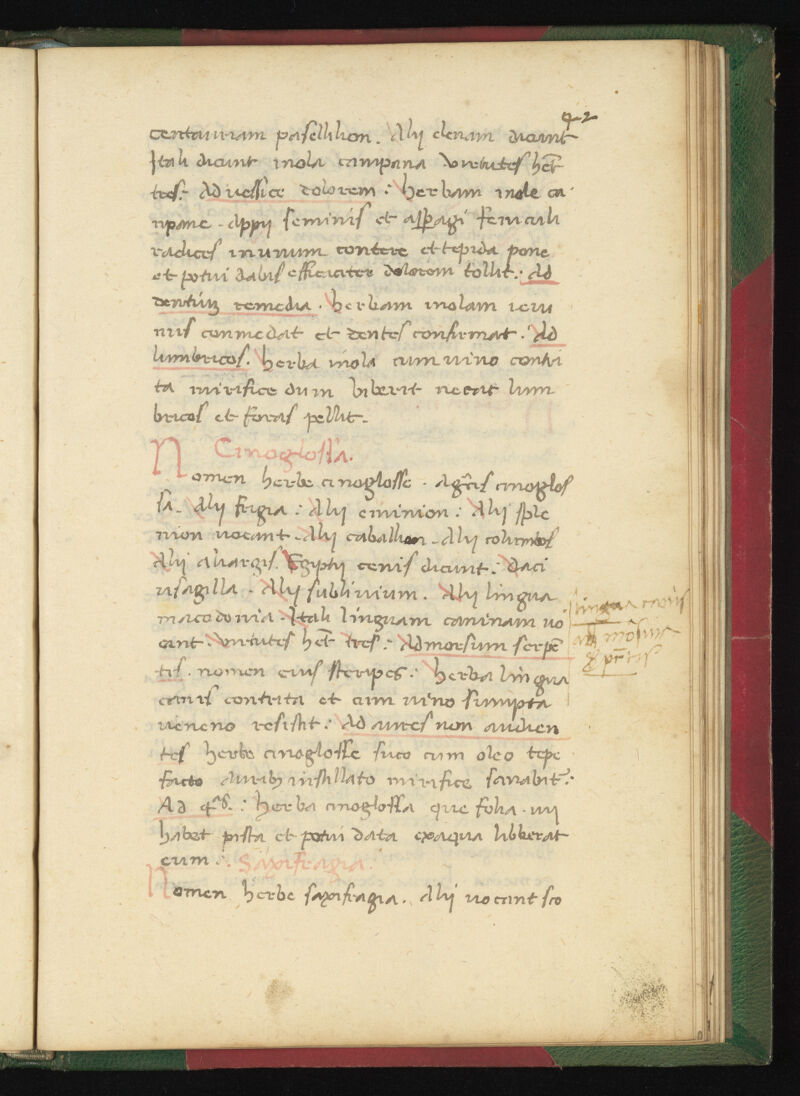 42
centauriam pasellilion. Alij elenam dicunt
Itali dicunt inola campana virtutes hēt
tres: Ad vessice dolorem: herbam inole ca
npane. appij seminis et asparagi feniculi
radices in unum contere et tepida pone
et potui dabis efficiciter dolorem tollit: Ad
dentiuʒ remedia. herbam inolam ieiu
nus conmedat et dentes confirmat. Ad
lumbricos. herba inola cum vino contri
ta mirifice dum biberit necat lum
bricos et foras pellit.
Cinoglossa.
Nomen herbe cinoglosse. a grcis cinoglos
sa. Alij frigia: Alij eminion: Alij sple
nion vocant. Alij caballion. Alij
Alij aliargis. Egiptij cenis dicunt: Daci
usagilla. Alij sublivium. Alij lingua
macedonia. Itali linguam caninam uo
cant. virtutes hēt tres: Ad morsum serpē
tis. nomen eius steripes: herba lingua
canis contrita et cum vino sumpta
ueneno resistit: Ad aures non audien
tes herbe cinoglosse suco cum oleo tepe
facto aurib instillato mirifice sanabit:
Ad: herba cinoglossa que folia. iiij
habet pista et potui data ex aqua libberat
eum. Saxifragia.
Nomen herbe saxifragia. Alij vocant sco
lingua canis